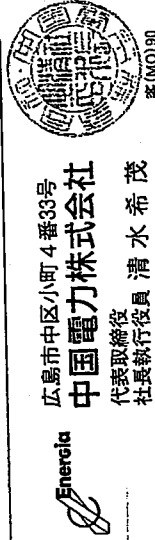 Energia
広島市中区小町4番33号
中国電力株式会社
代表取締役
社長執行役員 清水希茂